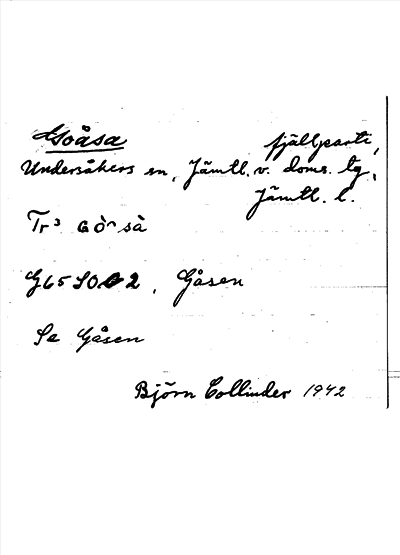 Goåsa fjällparti,
Undersåkers sn, Jämtl. v. doms. tg,
Jämtl. l.
Tr³
G65 SO 2, Gåsen
Se Gåsen
Björn Collinder 1942